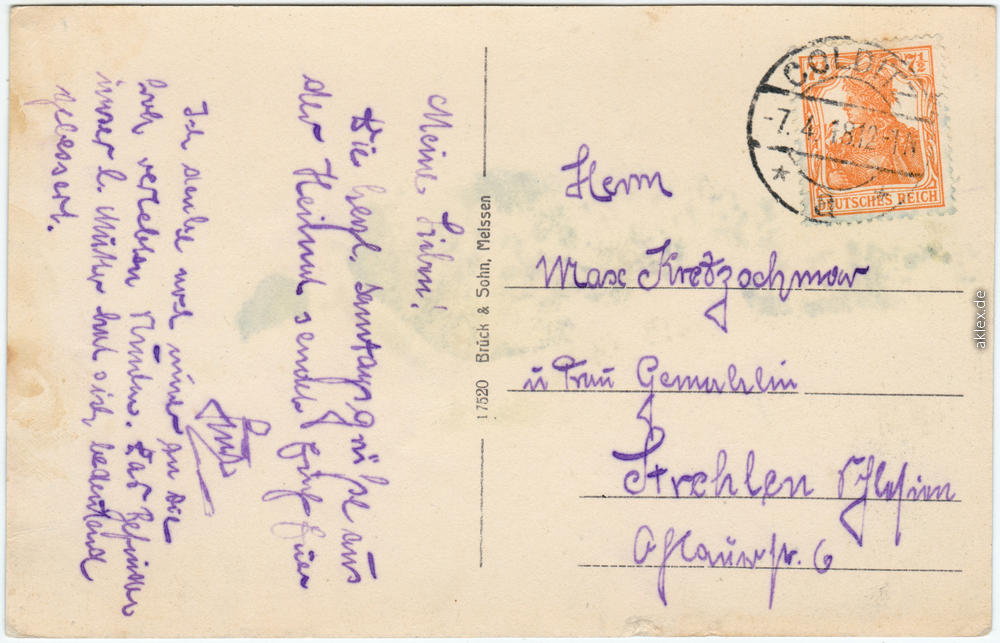 Meine Lieben!
Die herzl. Sonntagsgrüße aus
der Heimat sendet Euch Euer
Ich denke noch immer an die
hier verlebten Stunden. Das Befinden
unser l. Mutter hat sich bedeutend
gebessert.
17520 Brück & Sohn, Meissen
COLDITZ
-7.4.18.12-1N
7½
DEUTSCHES REICH
Herrn
Max Kretzschmar
u Frau Gemahlin
Strehlen Schlesien
Ohlauerstr. 6
aklex.de